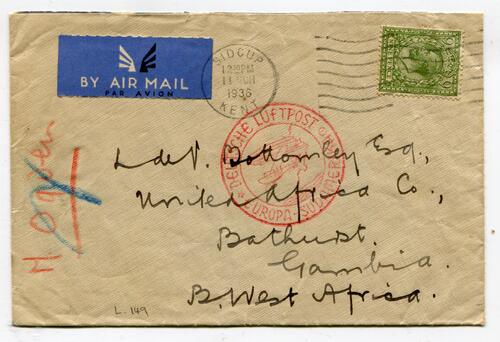 BY AIR MAIL
PAR AVION
SIDCUP
12 30 PM
11
1936
KENT
DEUTSCHE LUFTPOST
EUROPA-SÜDAMERIKA
L de V. Bottomley Esq.,
United Africa Co.,
Bathurst.
Gambia.
B. West Africa.
L. 149